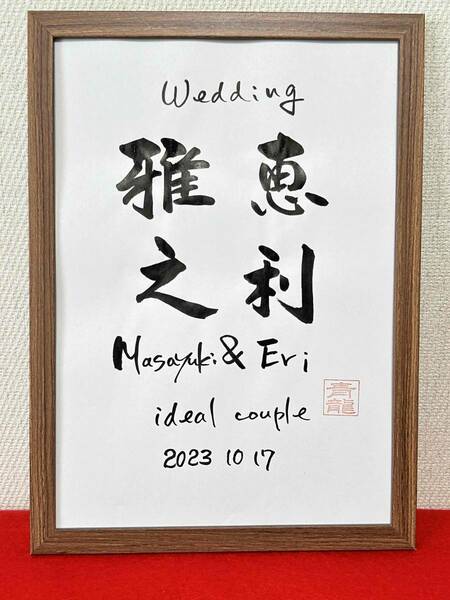 Wedding
雅之
恵利
Masayuki & Eri
ideal couple
2023 10 17
青龍